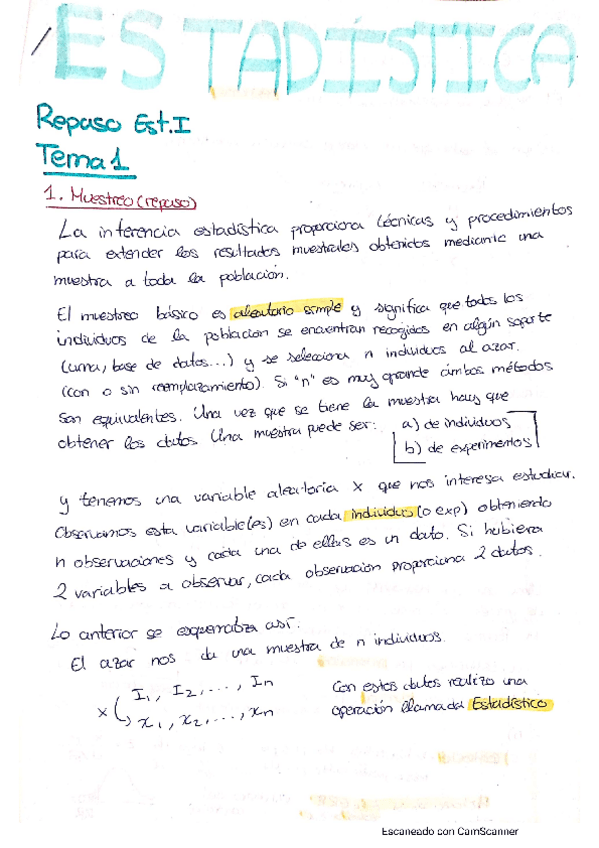 ESTADÍSTICA
Repaso Est.I
Tema 1
1. Muestreo (repaso)
La inferencia estadística proporciona técnicas y procedimientos
para extender los resultados muestrales obtenidos mediante una
muestra a toda la población.
El muestreo básico es aleatorio simple y significa que todos los
individuos de la población se encuentran recogidos en algún soporte
(urna, base de datos...) y se selecciona n individuos al azar.
(con o sin reemplazamiento). Si "n" es muy grande ambos métodos
son equivalentes. Una vez que se tiene la muestra hay que
obtener los datos. Una muestra puede ser: a) de individuos
b) de experimentos
y tenemos una variable aleatoria x que nos interesa estudiar.
Observamos esta variable(es) en cada individuo (o exp) obteniendo
n observaciones y cada una de ellas es un dato. Si hubiera
2 variables a observar, cada observación proporciona 2 datos.
Lo anterior se esquematiza así:
El azar nos da una muestra de n individuos.
I1, I2, ..., In
x
x1, x2, ..., xn
Con estos datos realizo una
operación llamada Estadístico
Escaneado con CamScanner